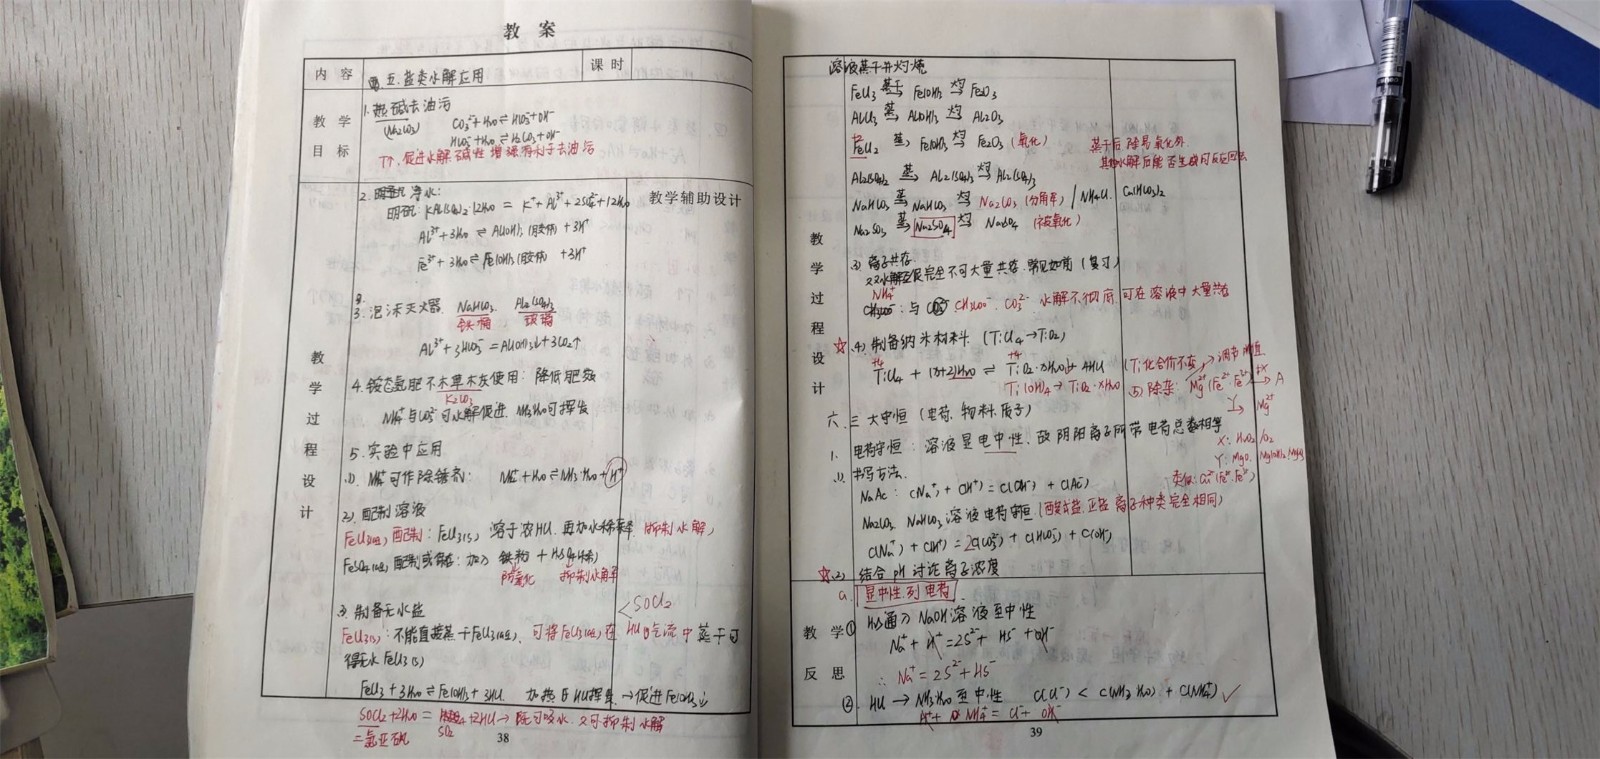 教 案
内 容
五.盐类水解应用
课 时
教 学
目 标
1.热碱去油污
(Na₂CO₃)
CO₃²⁻+H₂O⇌HCO₃⁻+OH⁻
HCO₃⁻+H₂O⇌H₂CO₃+OH⁻
T↑,促进水解碱性增强有利于去油污
教学辅助设计
教 学 过 程 设 计
2.明矾净水:
明矾:KAl(SO₄)₂·12H₂O = K⁺+Al³⁺+2SO₄²⁻+12H₂O
Al³⁺+3H₂O⇌Al(OH)₃(胶体)+3H⁺
Fe³⁺+3H₂O⇌Fe(OH)₃(胶体)+3H⁺
3.泡沫灭火器 NaHCO₃ Al₂(SO₄)₃
铁桶
Al³⁺+3HCO₃⁻=Al(OH)₃↓+3CO₂↑
4.铵态氮肥不与草木灰使用:降低肥效
K₂CO₃
NH₄⁺与CO₃²⁻可水解促进,NH₃·H₂O可挥发
5.实验中应用
(1).NH₄⁺可作除锈剂: NH₄⁺+H₂O⇌NH₃·H₂O+H⁺
(2).配制溶液
FeCl₃(aq)配制:FeCl₃(s),溶于浓HCl,再加水稀释,抑制水解,
FeSO₄(aq)配制或保存:加入铁粉+H₂SO₄(稀)
防氧化 抑制水解
(3).制备无水盐
SOCl₂
FeCl₃(s):不能直接蒸干FeCl₃(aq),可将FeCl₃(aq)在HCl气流中蒸干可
得无水FeCl₃(s)
FeCl₃+3H₂O⇌Fe(OH)₃+3HCl 加热HCl挥发→促进Fe(OH)₃↓
SOCl₂+H₂O=SO₂+2HCl→既可吸水,又可抑制水解
二氯亚砜
38
溶液蒸干并灼烧
FeCl₃ 蒸干→ Fe(OH)₃ 灼→ Fe₂O₃
AlCl₃ 蒸→ Al(OH)₃ 灼→ Al₂O₃
FeCl₂ 蒸→ Fe(OH)₃ 灼→ Fe₂O₃(氧化)
蒸干后除易氧化外.
Al₂(SO₄)₃ 蒸→ Al₂(SO₄)₃ 灼→ Al₂(SO₄)₃
NaHCO₃ 蒸→ NaHCO₃ 灼→ Na₂CO₃(分解) / NH₄Cl. Ca(HCO₃)₂
Na₂SO₃ 蒸→ Na₂SO₄ 灼→ Na₂SO₄(被氧化)
教 学 过 程 设 计
(3).离子共存
双水解至促完全不可大量共存.常见如前(复习)
NH₄⁺
CH₃COO⁻:与 CH₃COO⁻ CO₃²⁻ 水解不彻底,可在溶液中大量共存
☆(4).制备纳米材料(TiCl₄→TiO₂)
+4 +4
TiCl₄+(x+2)H₂O⇌TiO₂·xH₂O↓+4HCl (Ti化合价不变)
Ti(OH)₄→TiO₂·xH₂O
(5)除杂:Mg²⁺(Fe²⁺.Fe³⁺) +X→ A
Y→ Mg²⁺
六.三大守恒(电荷.物料.质子)
1.电荷守恒:溶液显电中性,故阴阳离子所带电荷总数相等
X:H₂O₂/O₂
Y:MgO.Mg(OH)₂.MgCO₃
类似:Cu²⁺(Fe²⁺.Fe³⁺)
(1).书写方法
NaAc: c(Na⁺)+c(H⁺)=c(OH⁻)+c(Ac⁻)
Na₂CO₃,NaHCO₃溶液电荷守恒(酸式盐.正盐离子种类完全相同)
c(Na⁺)+c(H⁺)=2c(CO₃²⁻)+c(HCO₃⁻)+c(OH⁻)
☆(2) 结合pH讨论离子浓度
a. 显中性,列电荷
教 学
反 思
① H₂S通入NaOH溶液至中性
Na⁺+H⁺=2S²⁻+HS⁻+OH⁻
∴Na⁺=2S²⁻+HS⁻
② HCl→NH₃·H₂O至中性 c(Cl⁻)<c(NH₃·H₂O)+c(NH₄⁺) ✓
H⁺+NH₄⁺=Cl⁻+OH⁻
39